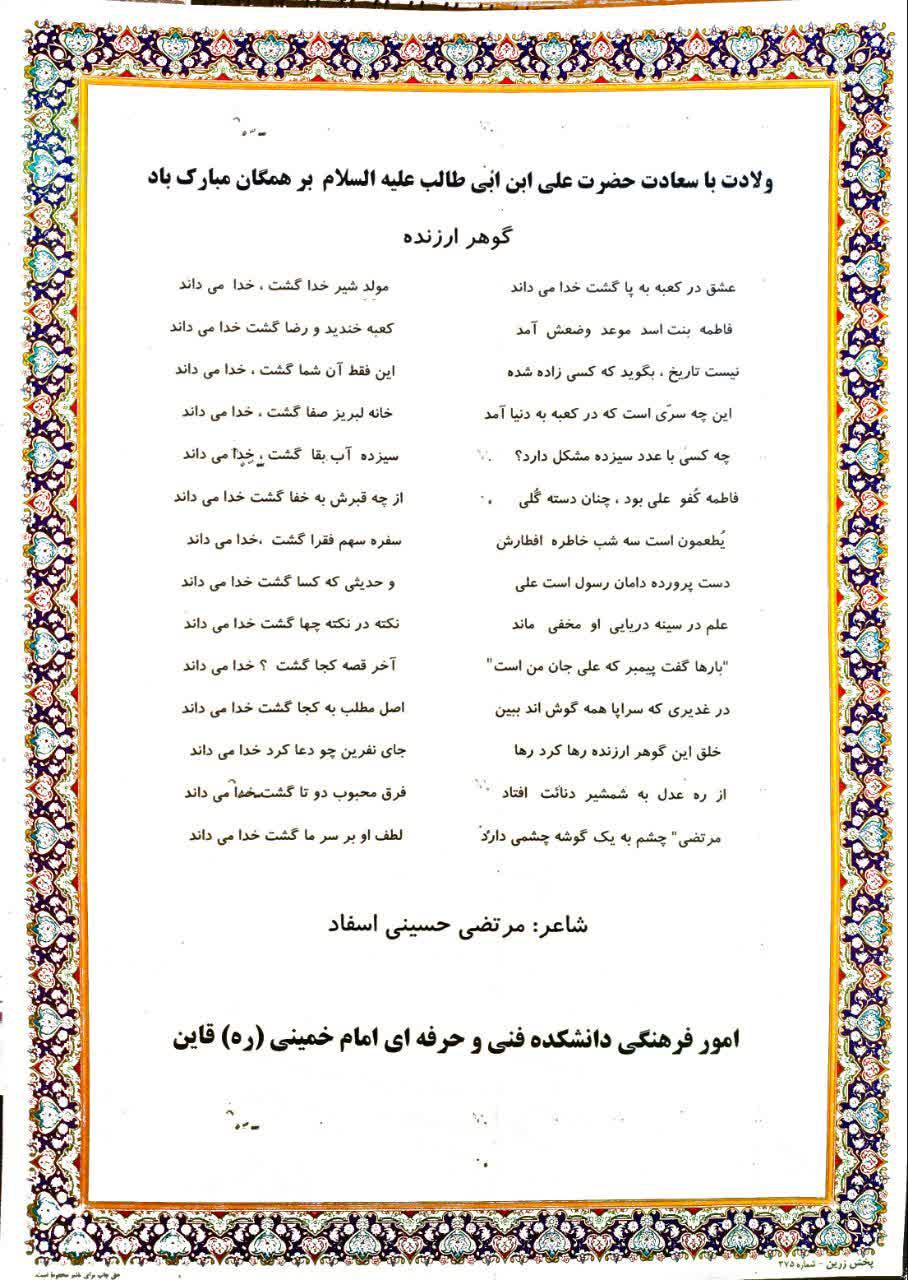 ولادت با سعادت حضرت علی ابن ابی طالب علیه السلام بر همگان مبارک باد
گوهر ارزنده
عشق در کعبه به پا گشت خدا می داند مولد شیر خدا گشت ، خدا می داند
فاطمه بنت اسد موعد وضعش آمد کعبه خندید و رضا گشت خدا می داند
نیست تاریخ ، بگوید که کسی زاده شده این فقط آن شما گشت ، خدا می داند
این چه سرّی است که در کعبه به دنیا آمد خانه لبریز صفا گشت ، خدا می داند
چه کسی با عدد سیزده مشکل دارد؟ سیزده آب بقا گشت ، خدا می داند
فاطمه کُفو علی بود ، چنان دسته گُلی از چه قبرش به خفا گشت خدا می داند
یُطعمون است سه شب خاطره افطارش سفره سهم فقرا گشت ،خدا می داند
دست پرورده دامان رسول است علی و حدیثی که کسا گشت خدا می داند
علم در سینه دریایی او مخفی ماند نکته در نکته چها گشت خدا می داند
"بارها گفت پیمبر که علی جان من است" آخر قصه کجا گشت ؟ خدا می داند
در غدیری که سراپا همه گوش اند ببین اصل مطلب به کجا گشت خدا می داند
خلق این گوهر ارزنده رها کرد رها جای نفرین چو دعا کرد خدا می داند
از ره عدل به شمشیر دنائت افتاد فرق محبوب دو تا گشت خدا می داند
مرتضی" چشم به یک گوشه چشمی دارد لطف او بر سر ما گشت خدا می داند
شاعر: مرتضی حسینی اسفاد
امور فرهنگی دانشکده فنی و حرفه ای امام خمینی (ره) قاین
پخش زرین - شماره ۲۷۵
حق چاپ برای ناشر محفوظ است.